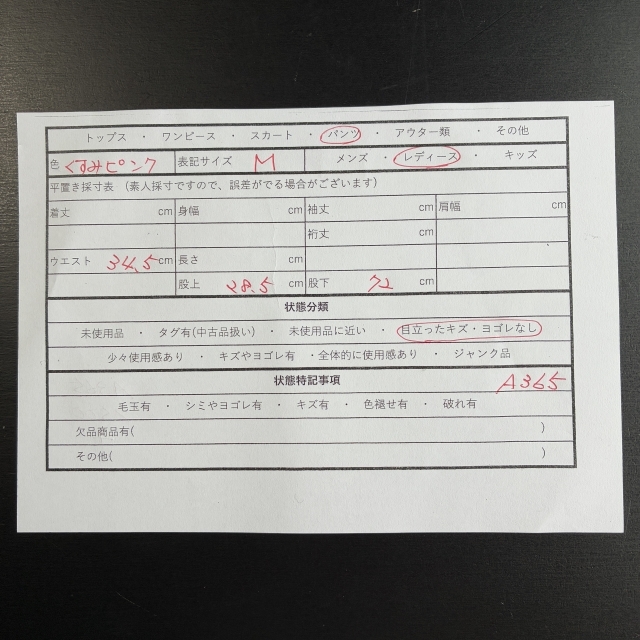 トップス ・ ワンピース ・ スカート ・ パンツ ・ アウター類 ・ その他
色 くすみピンク 表記サイズ M メンズ ・ レディース ・ キッズ
平置き採寸表 (素人採寸ですので、誤差がでる場合がございます)
着丈 cm 身幅 cm 袖丈 cm 肩幅 cm
裄丈 cm
ウエスト 34.5 cm 長さ cm
股上 28.5 cm 股下 72 cm
状態分類
未使用品 ・ タグ有(中古品扱い) ・ 未使用品に近い ・ 目立ったキズ・ヨゴレなし
少々使用感あり ・ キズやヨゴレ有 ・全体的に使用感あり ・ ジャンク品
状態特記事項 A365
毛玉有 ・ シミやヨゴレ有 ・ キズ有 ・ 色褪せ有 ・ 破れ有
欠品商品有( )
その他( )